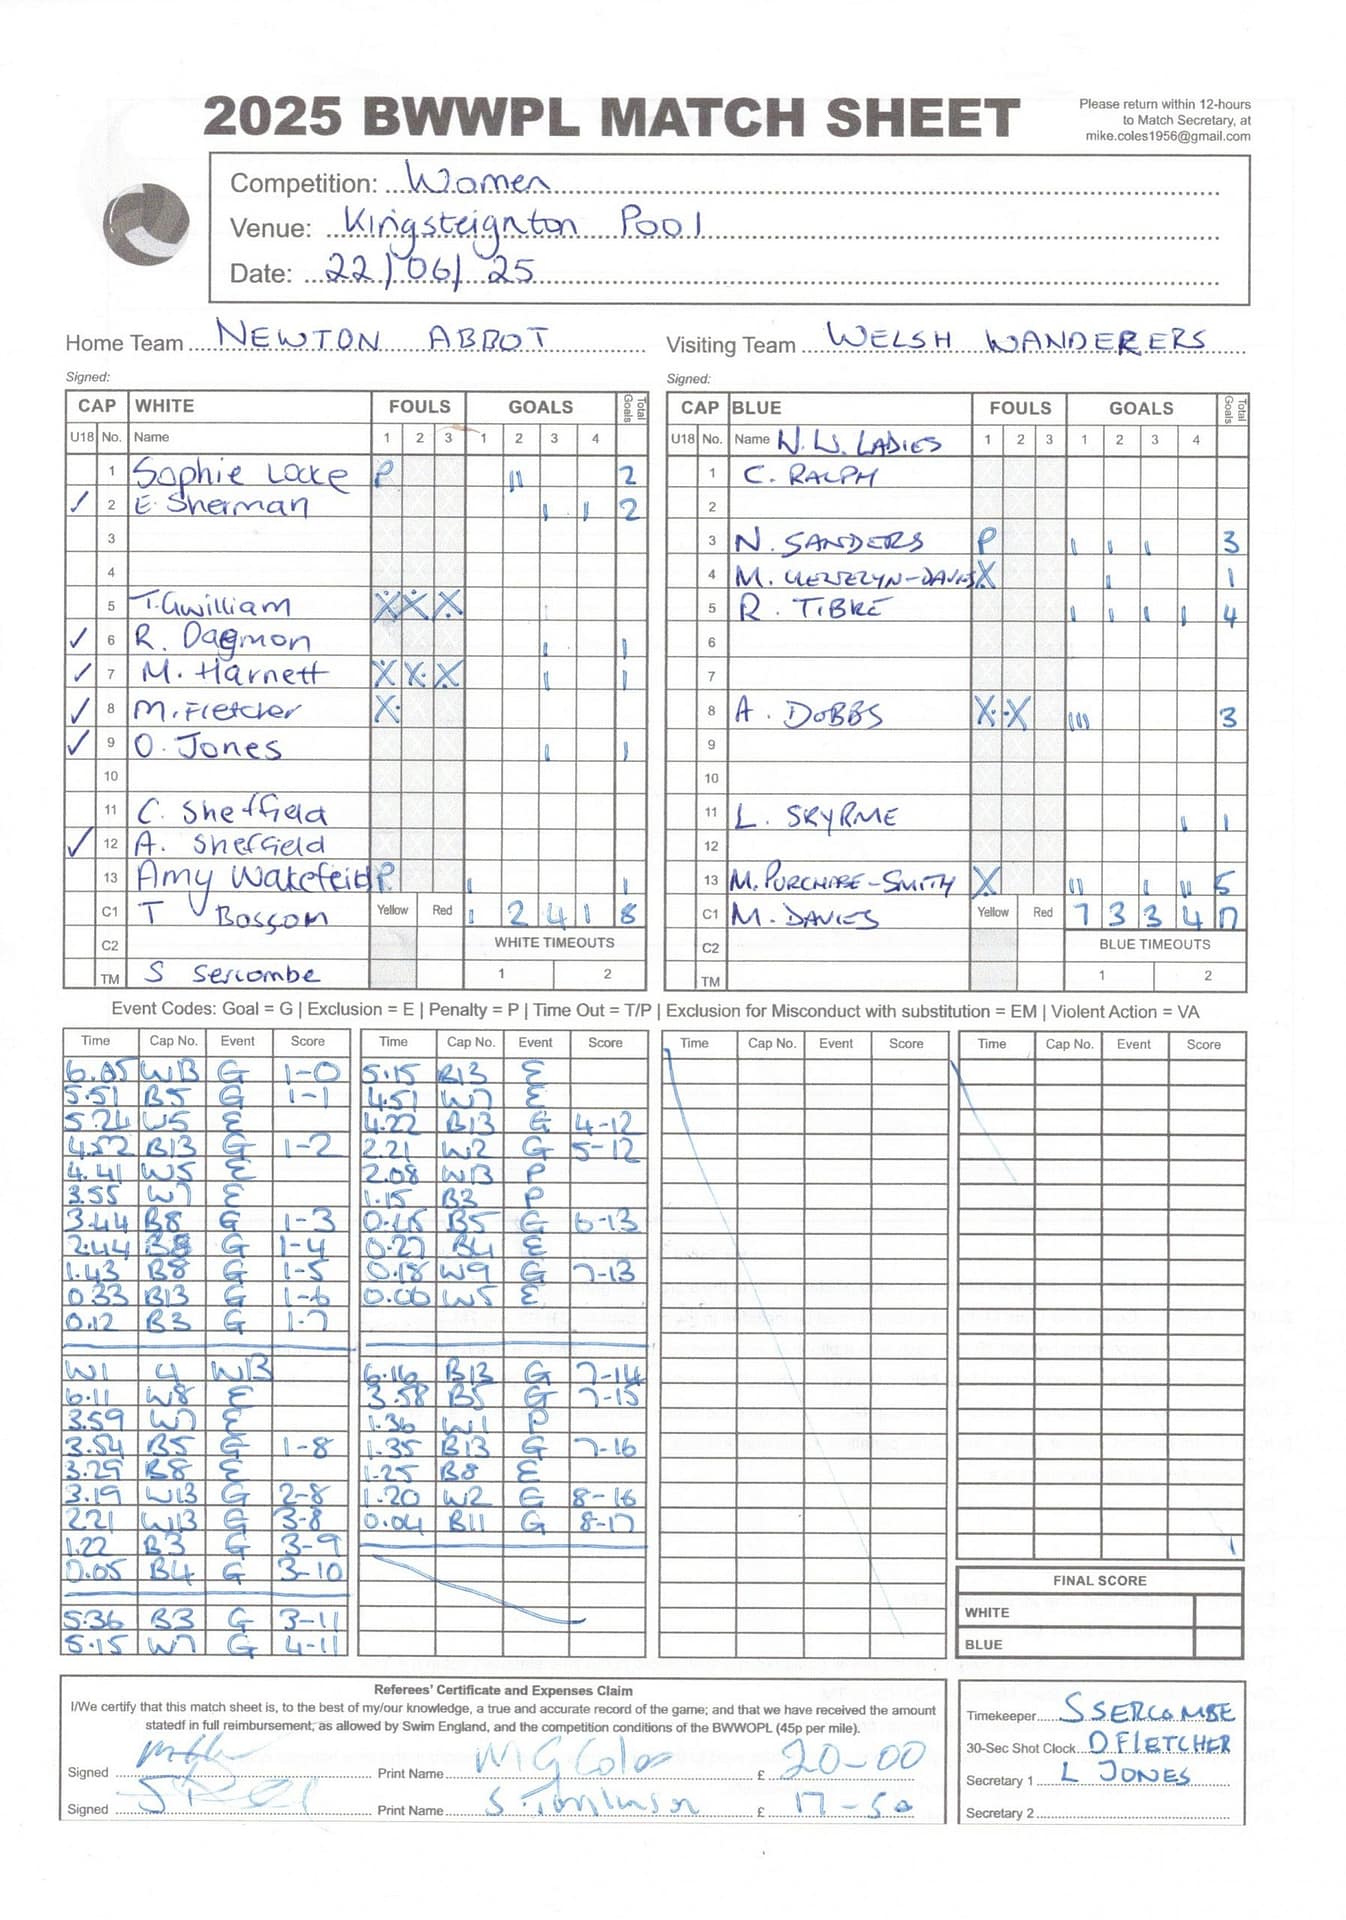 2025 BWWPL MATCH SHEET
Please return within 12-hours
to Match Secretary, at
mike.coles1956@gmail.com
Competition: Women
Venue: Kingsteignton Pool
Date: 22/06/25
Home Team NEWTON ABBOT
Visiting Team WELSH WANDERERS
Signed:
Signed:
CAP WHITE FOULS GOALS Total Goals
U18 No. Name 1 2 3 1 2 3 4
1 Sophie Locke P II 2
✓ 2 E. Sherman I I 2
3
4
5 T. Gwilliam X X X
✓ 6 R. Dagmon I I
✓ 7 M. Harnett X X X I I
✓ 8 M. Fletcher X
✓ 9 O. Jones I I
10
11 C. Sheffield
✓ 12 A. Sheffield
13 Amy Wakefeild P I I
C1 T Bossom Yellow Red 1 2 4 1 8
C2 WHITE TIMEOUTS
TM S Sercombe 1 2
CAP BLUE FOULS GOALS Total Goals
U18 No. Name W.W. LADIES 1 2 3 1 2 3 4
1 C. RALPH
2
3 N. SANDERS P I I I 3
4 M. LLEWELYN-DAVIES X I 1
5 R. TIBKE I I I I 4
6
7
8 A. DOBBS X X III 3
9
10
11 L. SKYRME I 1
12
13 M. PURCHASE-SMITH X II I II 5
C1 M. DAVIES Yellow Red 7 3 3 4 17
C2 BLUE TIMEOUTS
TM 1 2
Event Codes: Goal = G | Exclusion = E | Penalty = P | Time Out = T/P | Exclusion for Misconduct with substitution = EM | Violent Action = VA
Time Cap No. Event Score
6.05 W13 G 1-0
5.51 B5 G 1-1
5.24 W5 E
4.52 B13 G 1-2
4.41 W5 E
3.55 W7 E
3.44 B8 G 1-3
2.44 B8 G 1-4
1.43 B8 G 1-5
0.33 B13 G 1-6
0.12 B3 G 1-7
W1 4 W13
6.11 W8 E
3.59 W7 E
3.54 B5 G 1-8
3.29 B8 E
3.19 W13 G 2-8
2.21 W13 G 3-8
1.22 B3 G 3-9
0.05 B4 G 3-10
5.36 B3 G 3-11
5.15 W7 G 4-11
Time Cap No. Event Score
5.15 B13 E
4.51 W7 E
4.22 B13 G 4-12
2.21 W2 G 5-12
2.08 W13 P
1.15 B3 P
0.45 B5 G 6-13
0.27 B4 E
0.18 W9 G 7-13
0.06 W5 E
6.16 B13 G 7-14
3.58 B5 G 7-15
1.36 W1 P
1.35 B13 G 7-16
1.25 B8 E
1.20 W2 G 8-16
0.04 B11 G 8-17
Time Cap No. Event Score
Time Cap No. Event Score
FINAL SCORE
WHITE
BLUE
Referees' Certificate and Expenses Claim
I/We certify that this match sheet is, to the best of my/our knowledge, a true and accurate record of the game; and that we have received the amount
statedf in full reimbursement, as allowed by Swim England, and the competition conditions of the BWWOPL (45p per mile).
Signed Print Name M G Coles £ 20-00
Signed Print Name S. Tomlinson £ 17-50
Timekeeper S SERCOMBE
30-Sec Shot Clock D FLETCHER
Secretary 1 L JONES
Secretary 2